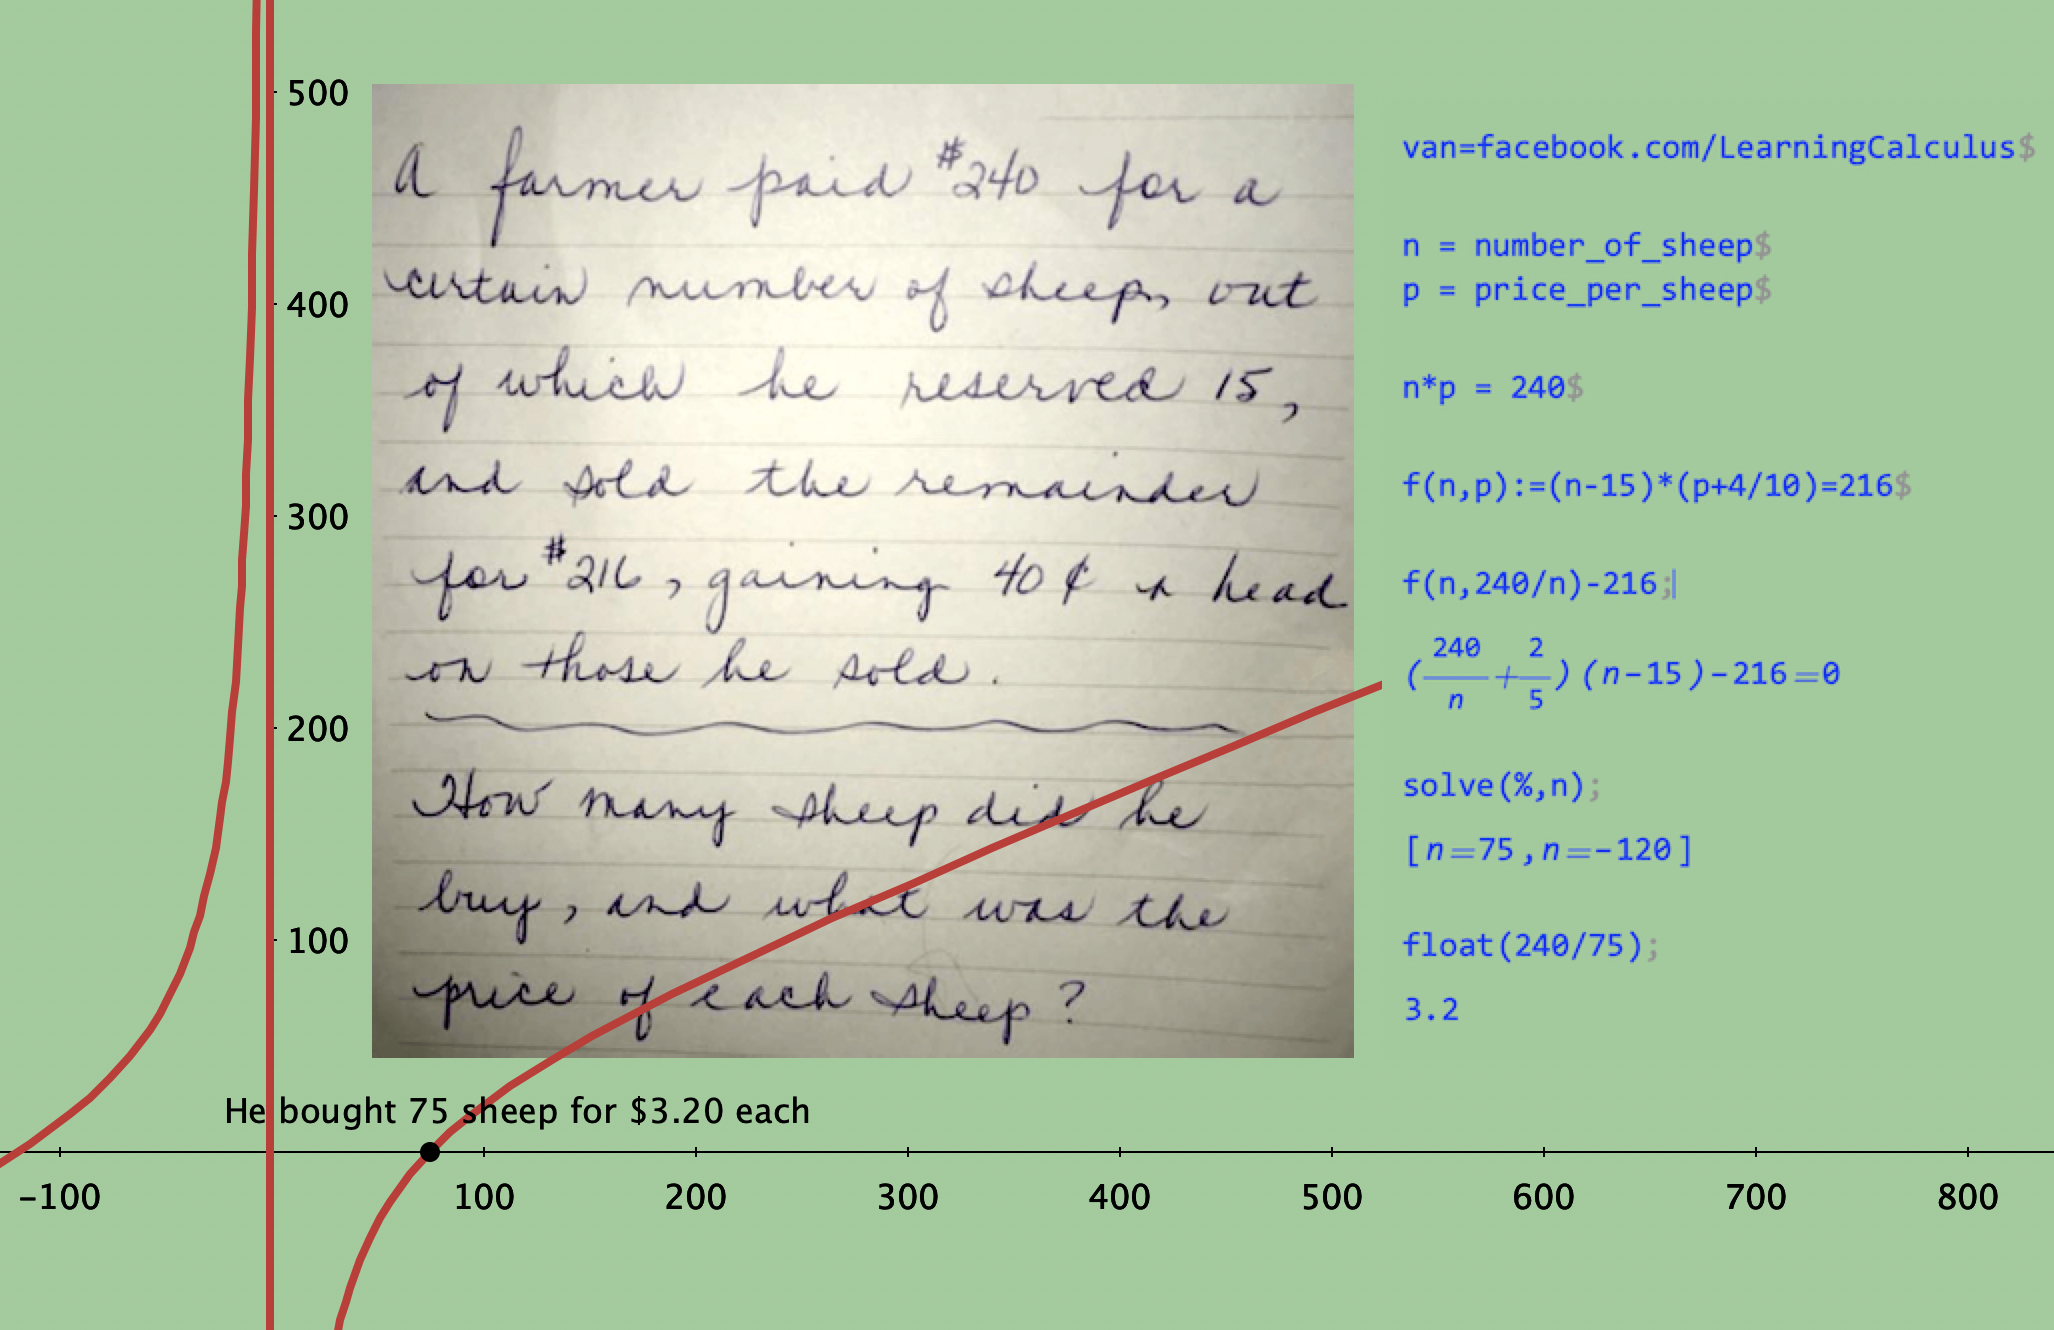 500
400
300
200
100
A farmer paid $240 for a
certain number of sheep, out
of which he reserved 15,
and sold the remainder
for $216, gaining 40¢ a head
on those he sold.
How many sheep did he
buy, and what was the
price of each sheep?
van=facebook.com/LearningCalculus$
n = number_of_sheep$
p = price_per_sheep$
n*p = 240$
f(n,p):=(n-15)*(p+4/10)=216$
f(n,240/n)-216;
(240/n+2/5)(n-15)-216=0
solve(%,n);
[n=75,n=-120]
float(240/75);
3.2
He bought 75 sheep for $3.20 each
-100 100 200 300 400 500 600 700 800